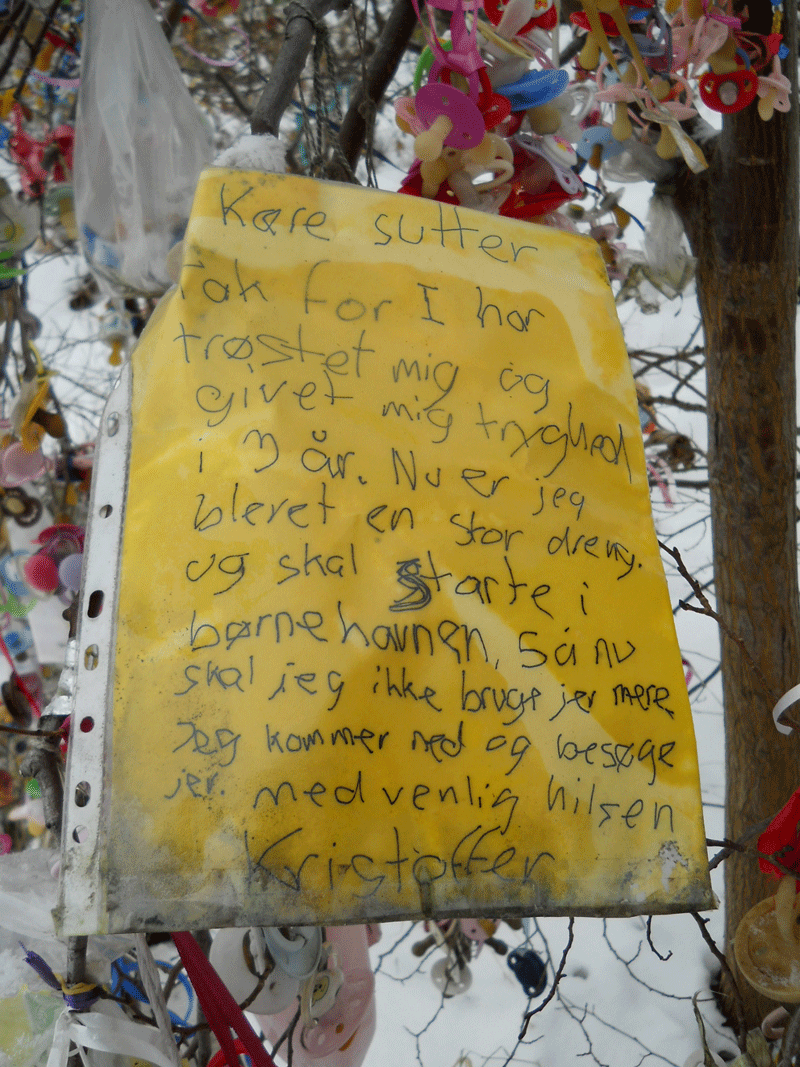 Kære sutter
Tak for I har
trøstet mig og
givet mig tryghed
i 3 år. Nu er jeg
blevet en stor dreng.
og skal starte i
børnehavnen, Så nu
skal jeg ikke bruge jer mere.
Jeg kommer ned og besøge
jer. med venlig hilsen
Kristoffer